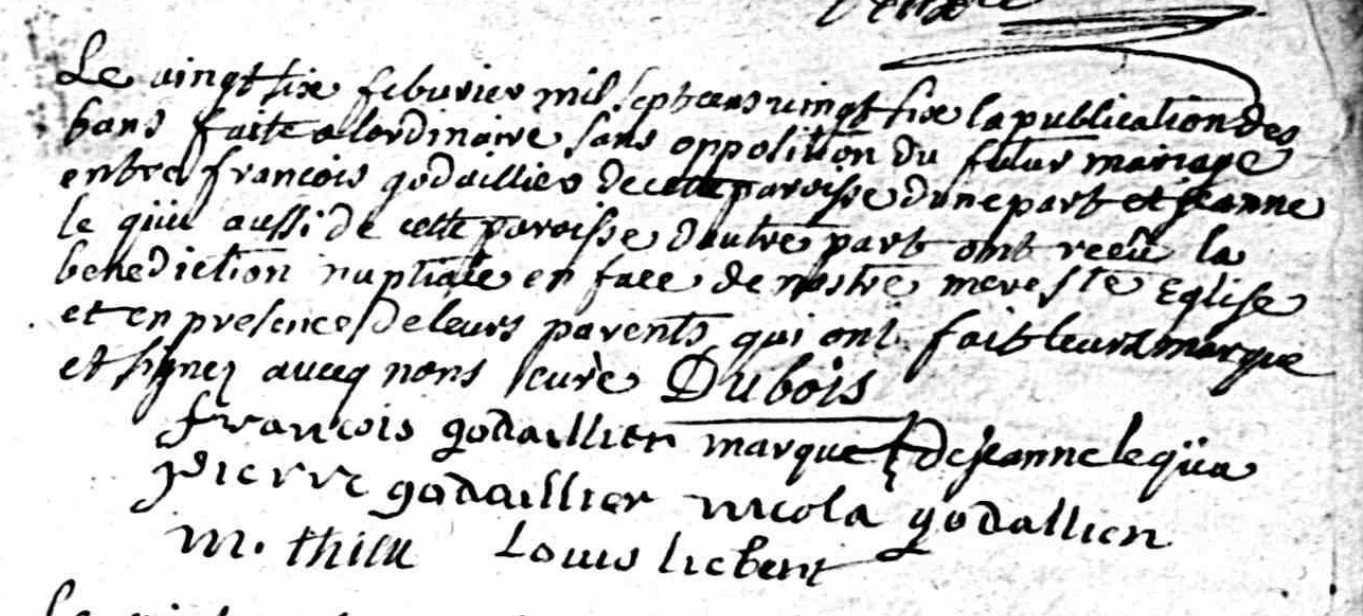 Le vingt six feburier mil sept cens vingt six la publication des
bans faite a lordinaire sans oppolition du futur mariage
entre francois godaillier de cette paroisse dune part et jeanne
le qüu aussi de cette paroisse dautre part ont receu la
benediction nuptiale en face de nostre mere ste Eglise
et en presence de leurs parents qui ont fait leurs marque
et signez avecq nous curè Dubois
francois godaillier marque de jeanne le qüa
pierre godaillier nicola godallier
m. Louis liebert